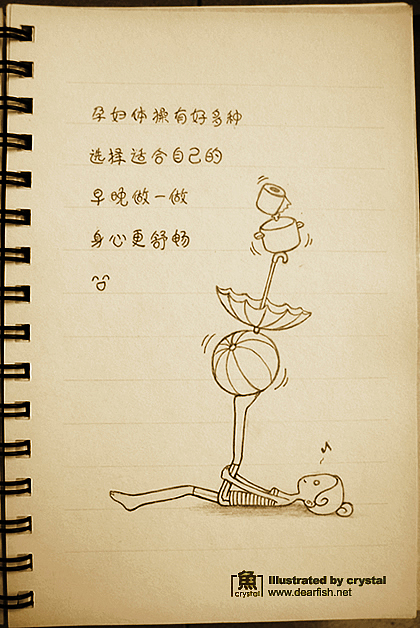 孕妇体操有好多种
选择适合自己的
早晚做一做
身心更舒畅
魚
crystal
Illustrated by crystal
www.dearfish.net